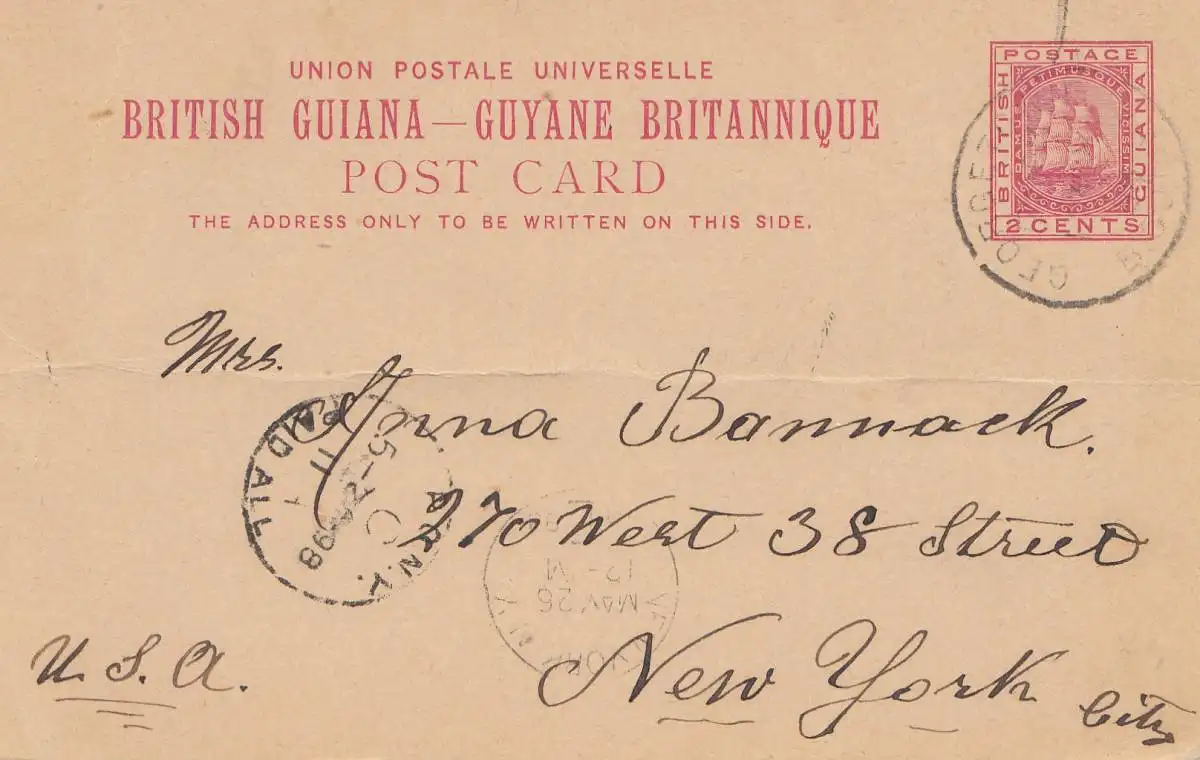 UNION POSTALE UNIVERSELLE
BRITISH GUIANA — GUYANE BRITANNIQUE
POST CARD
THE ADDRESS ONLY TO BE WRITTEN ON THIS SIDE.
POSTAGE
BRITISH
GUIANA
DAMUS PETIMUSQUE VICISSIM
2 CENTS
Mrs.
Anna Bannack.
270 West 38 Street
New York City
U.S.A.
PAID ALL
11
98
N.Y.
MAY 26
12-M